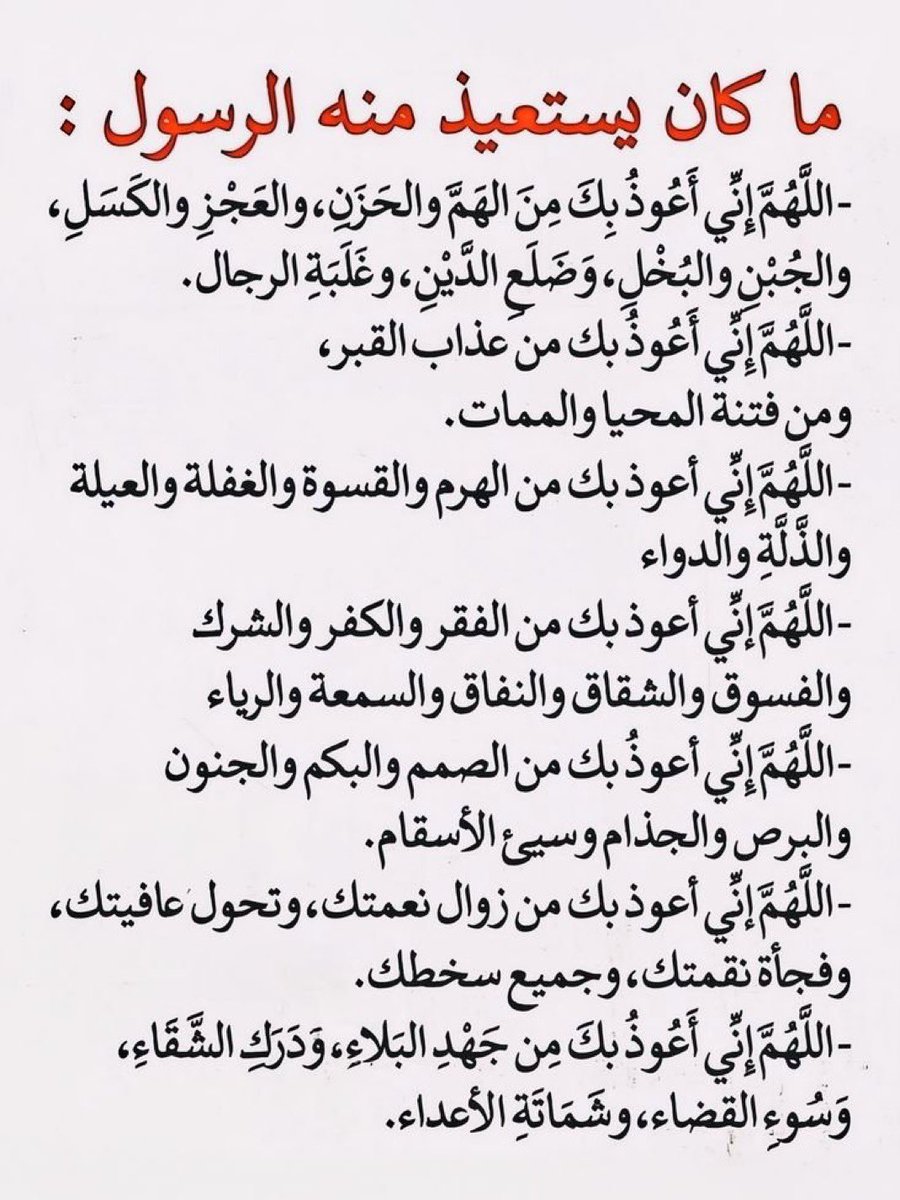 ما كان يستعيذ منه الرسول :
-اللَّهُمَّ إِنِّي أَعُوذُ بِكَ مِنَ الهَمَّ والحَزَنِ، والعَجْزِ والكَسَلِ،
والجُبْنِ والبُخْلِ، وَضَلَعِ الدَّيْنِ، وغَلَبَةِ الرجال.
-اللَّهُمَّ إِنِّي أَعُوذُ بك من عذاب القبر،
ومن فتنة المحيا والممات.
-اللَّهُمَّ إِنِّي أعوذ بك من الهرم والقسوة والغفلة والعيلة
والذَّلَّةِ والدواء
-اللَّهُمَّ إِنِّي أعوذ بك من الفقر والكفر والشرك
والفسوق والشقاق والنفاق والسمعة والرياء
-اللَّهُمَّ إِنِّي أعوذُ بك من الصمم والبكم والجنون
والبرص والجذام وسيئ الأسقام.
-اللَّهُمَّ إِنِّي أعوذ بك من زوال نعمتك، وتحول عافيتك،
وفجأة نقمتك، وجميع سخطك.
-اللَّهُمَّ إِنِّي أَعُوذُ بكَ مِن جَهْدِ البَلاءِ، وَدَرَكِ الشَّقَاءِ،
وَسُوءِ القضاء، وشَمَاتَةِ الأعداء.